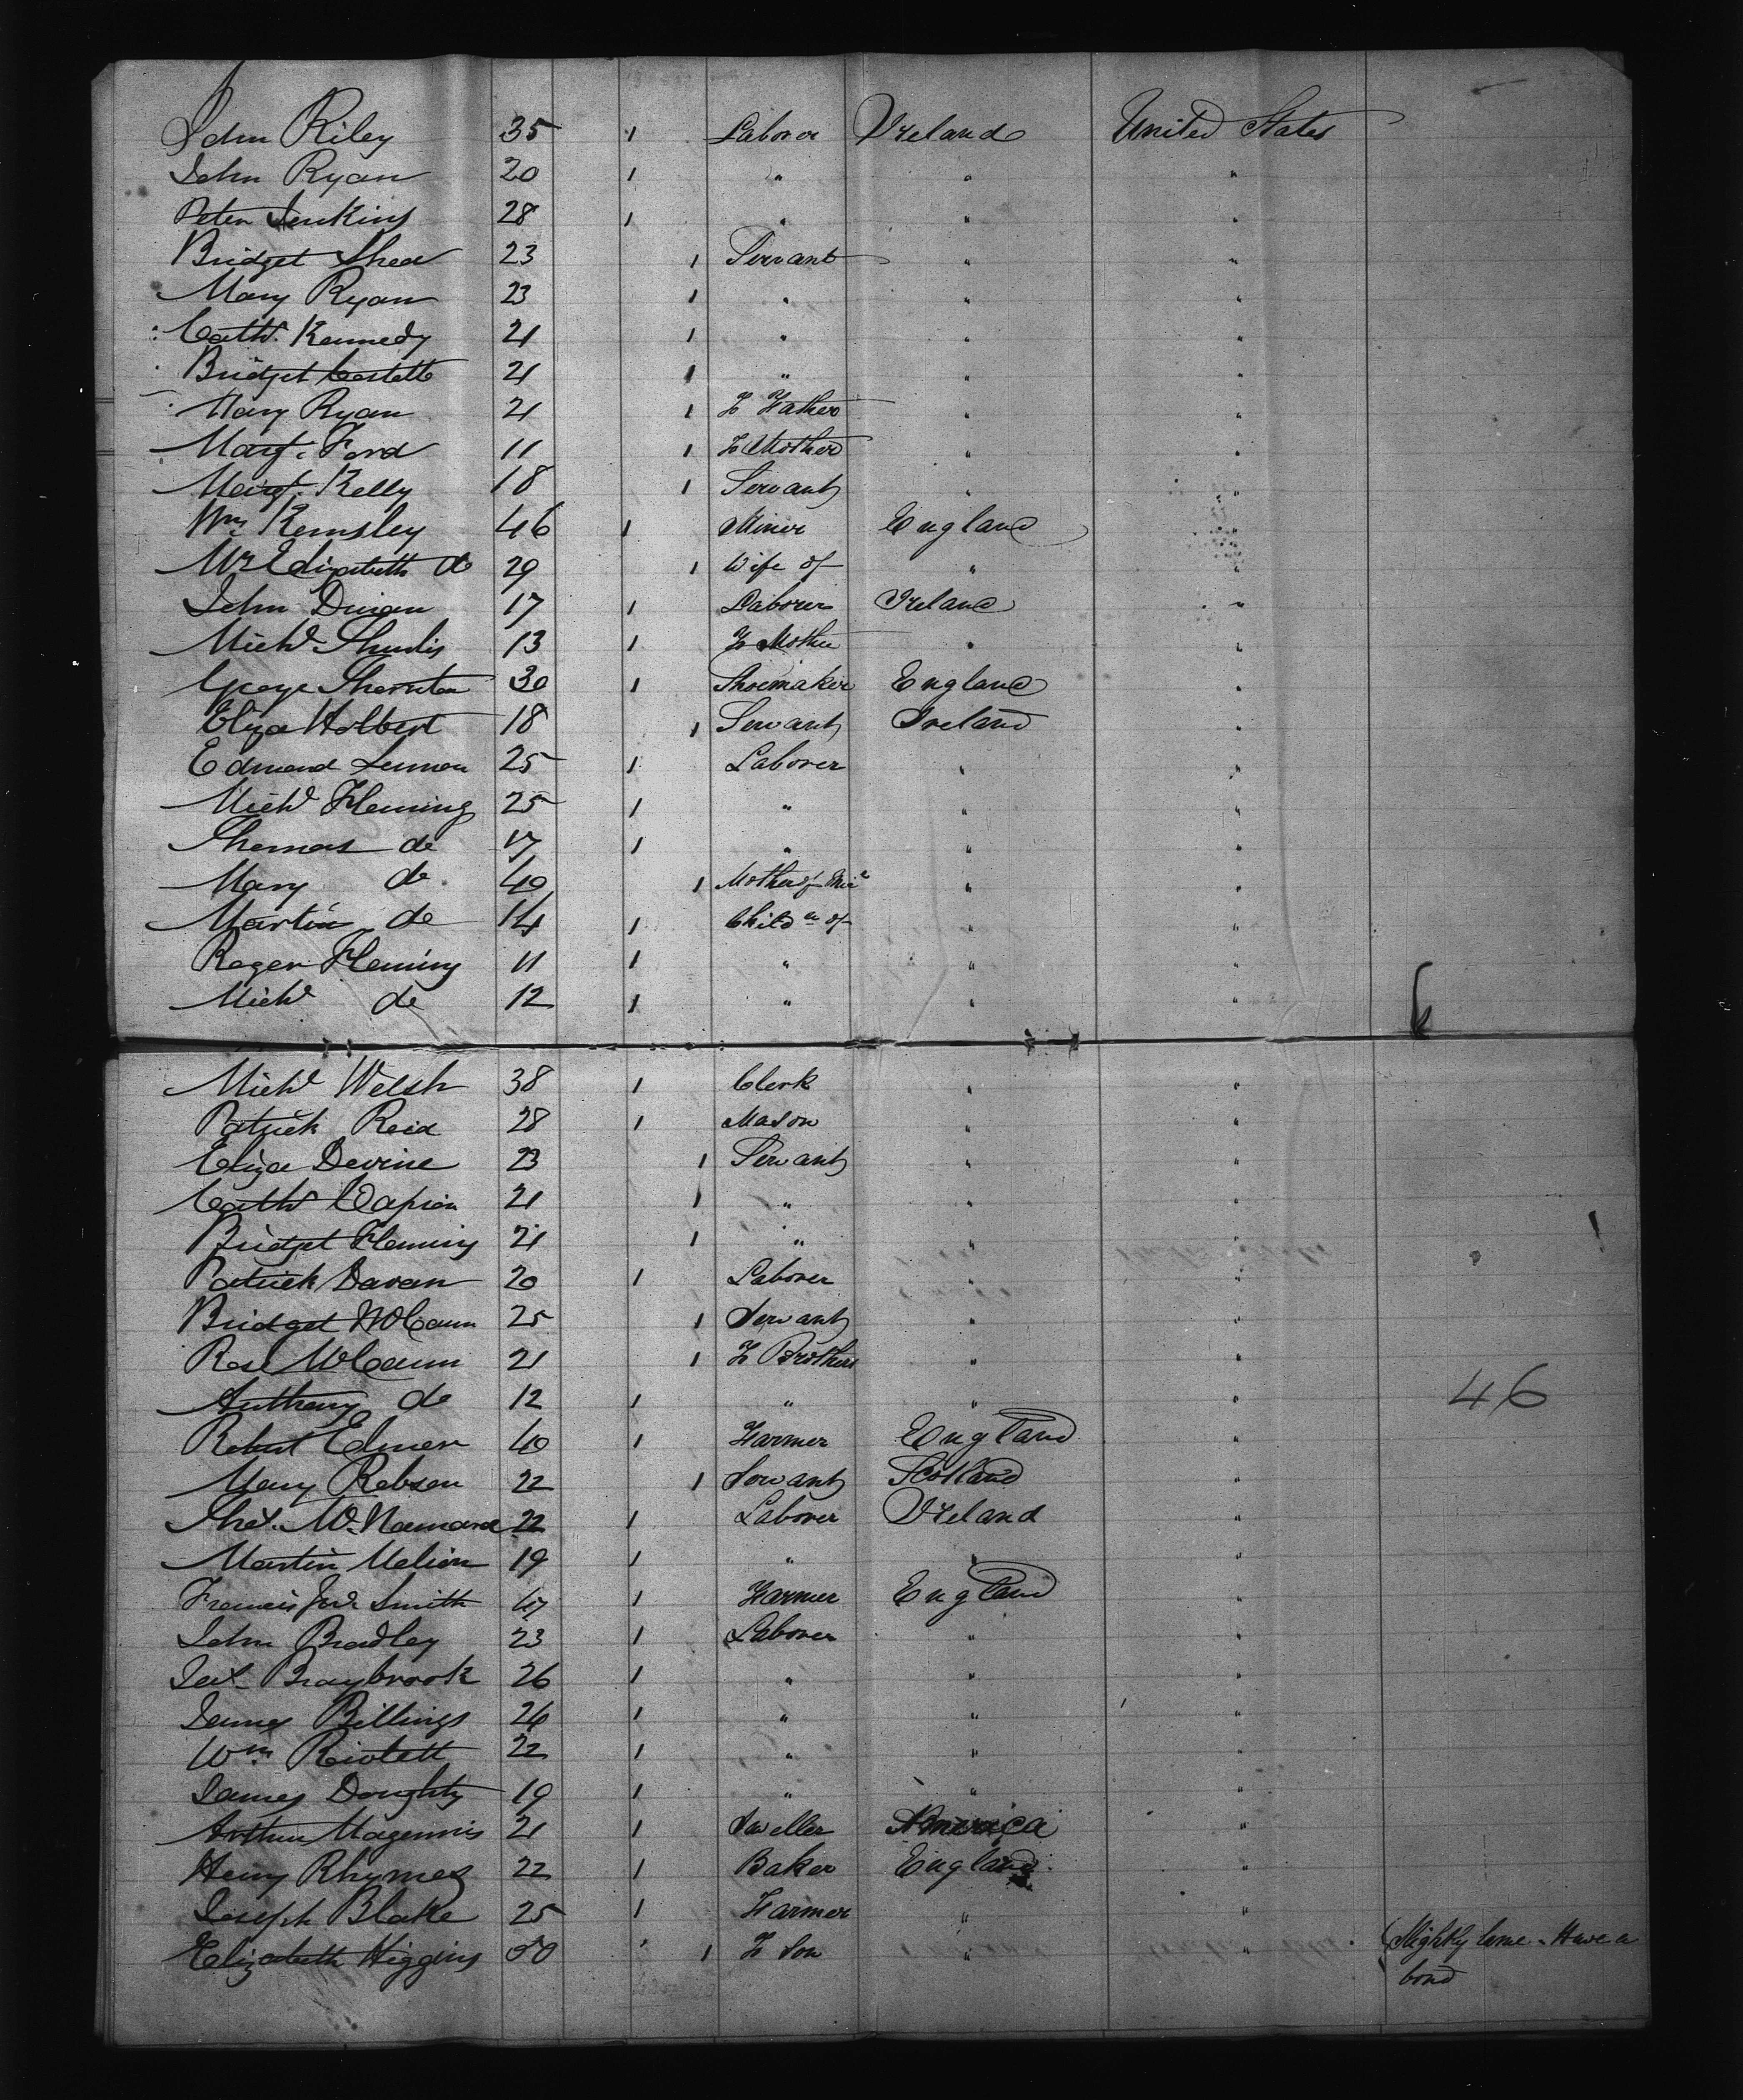 John Riley 35 1 Laborer Ireland United States
John Ryan 20 1 " " "
Peter Jenkins 28 1 " " "
Bridget Shea 23 1 Servant " "
Mary Ryan 23 1 " " "
Cathe. Kennedy 21 1 " " "
Bridget Costello 21 1 " " "
Mary Ryan 21 1 To Father " "
Margt. Ford 11 1 To Mother " "
Margt. Kelly 18 1 Servant " "
Wm Kemsley 46 1 Miner England "
Mrs Elizabeth do 29 1 Wife of " "
John Duigan 17 1 Laborer Ireland "
Michl 13 1 To Mother " "
George Thornton 30 1 Shoemaker England "
Eliza Holbert 18 1 Servant Ireland "
Edmond Lennon 25 1 Laborer " "
Michl Fleming 25 1 " " "
Thomas do 17 1 " " "
Mary do 40 1 Mother of " "
Martin do 14 1 Childn of " "
Roger Fleming 11 1 " " "
Michl do 12 1 " " "
Michl Welsh 38 1 Clerk " "
Patrick Reid 28 1 Mason " "
Eliza Devine 23 1 Servant " "
Cathe 21 1 " " "
Bridget Fleming 21 1 " " "
Patrick Davan 20 1 Laborer " "
Bridget McCann 25 1 Servant " "
Rose McCann 21 1 To Brothers " "
Anthony do 12 1 " " " 46
Robert Elmer 40 1 Farmer England "
Mary Robson 22 1 Servant Scotland "
Thos. McNamara 22 1 Laborer Ireland "
Martin Melion 19 1 " " "
Francis Smith 47 1 Farmer England "
John Bradley 23 1 Laborer " "
Jas. Braybrook 26 1 " " "
James Billings 26 1 " " "
Wm 22 1 " " "
James Doughty 19 1 " " "
Arthur Magennis 21 1 Jweller America "
Henry Rhymes 22 1 Baker England "
Joseph Blake 25 1 Farmer " "
Elizabeth Higgins 50 1 To Son " " Slightly lame. Have a
bond